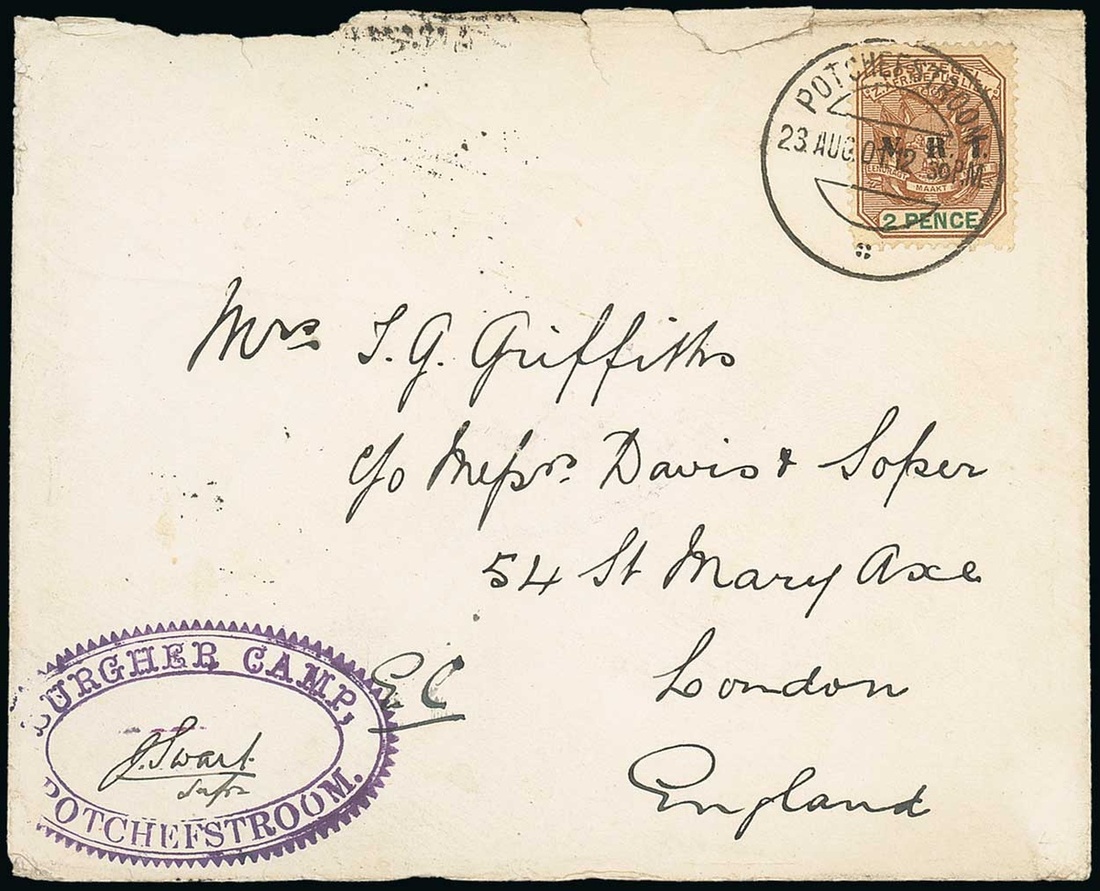 POTCHEFSTROOM.
23 AUG. 01 12 30 P.M.
Z. AFR. REPUBLIEK
N. R. T.
EENDRAGT MAAKT
2 PENCE
Mrs. T. G. Griffiths
c/o Messrs. Davis & Soper
54 St Mary Axe
London
E.C
England
BURGHER CAMP,
J. Swart.
Supr
POTCHEFSTROOM.